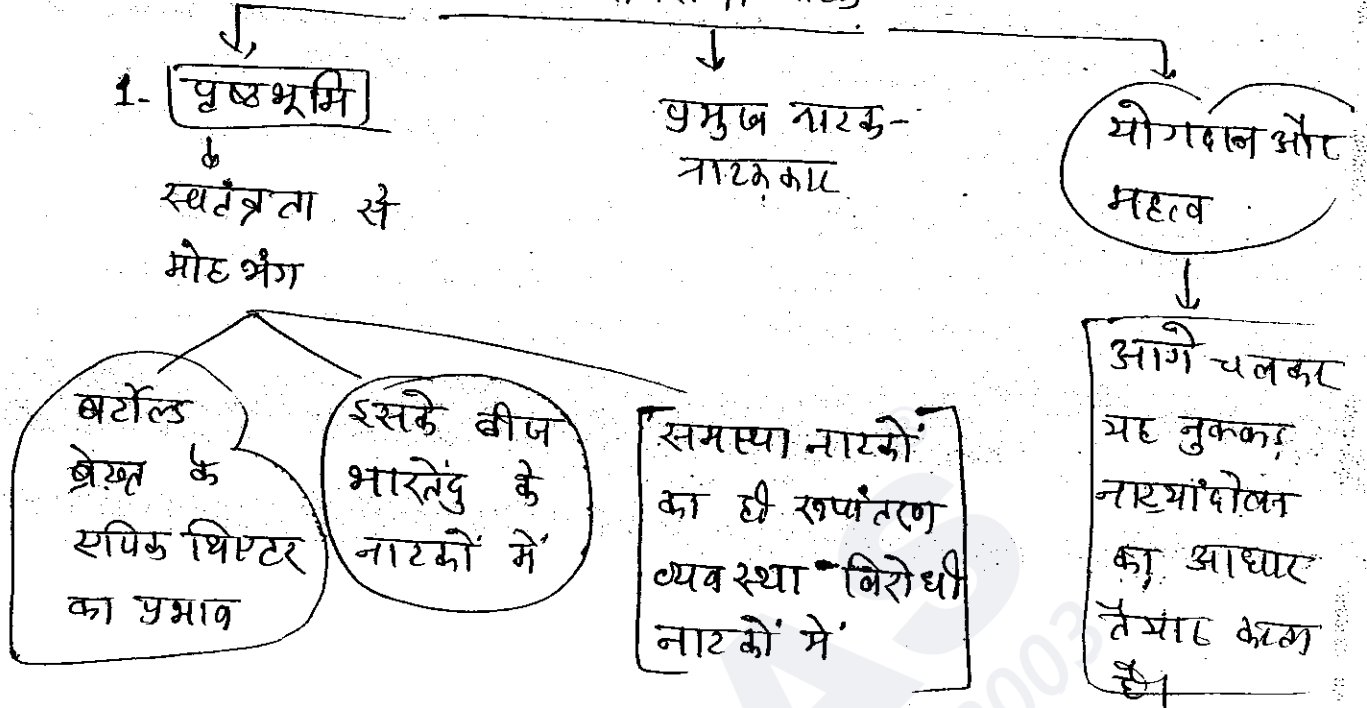 1- पृष्ठभूमि
स्वतंत्रता से
मोह भंग
बर्टोल्ड
ब्रेख्त के
एपिक थिएटर
का प्रभाव
इसके बीज
भारतेंदु के
नाटकों में
समस्या नाटकों
का ही रूपांतरण
व्यवस्था विरोधी
नाटकों में
प्रमुख नाटक-
नाटककार
योगदान और
महत्व
आगे चलकर
यह नुक्कड़
नाट्यांदोलन
का आधार
तैयार करता
है।